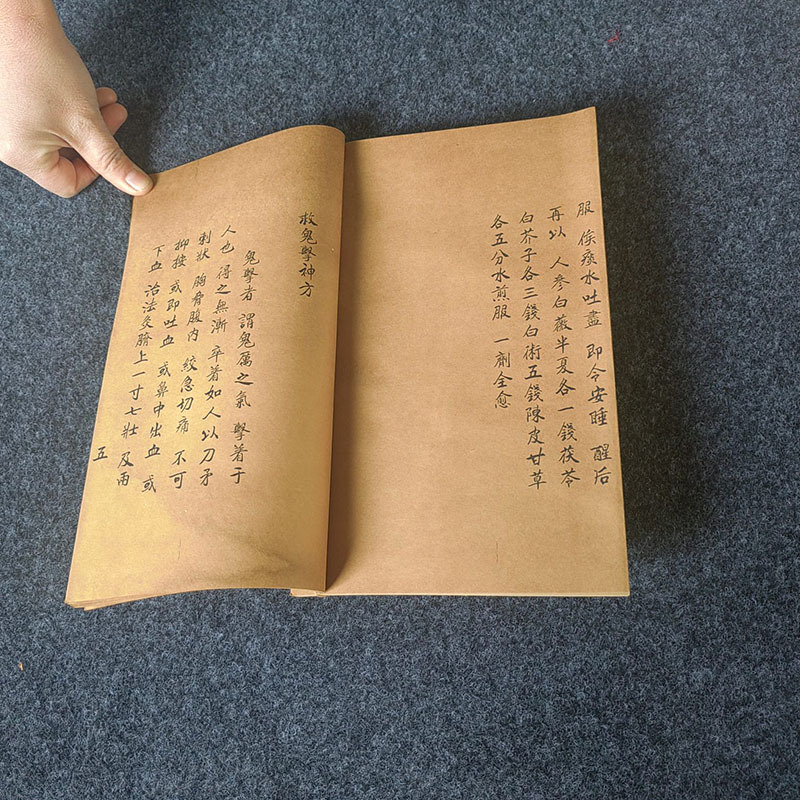 服 俟痰水吐盡 即令安睡 醒后
再以 人參白薇半夏各一錢茯苓
白芥子各三錢白術五錢陳皮甘草
各五分水煎服 一劑全愈
救鬼擊神方
鬼擊者 謂鬼厲之氣 擊著于
人也 得之無漸 卒着如人以刀矛
刺狀 胸脅腹內 絞急切痛 不可
抑按 或即吐血 或鼻中出血 或
下血 治法灸臍上一寸七壯 及兩
五